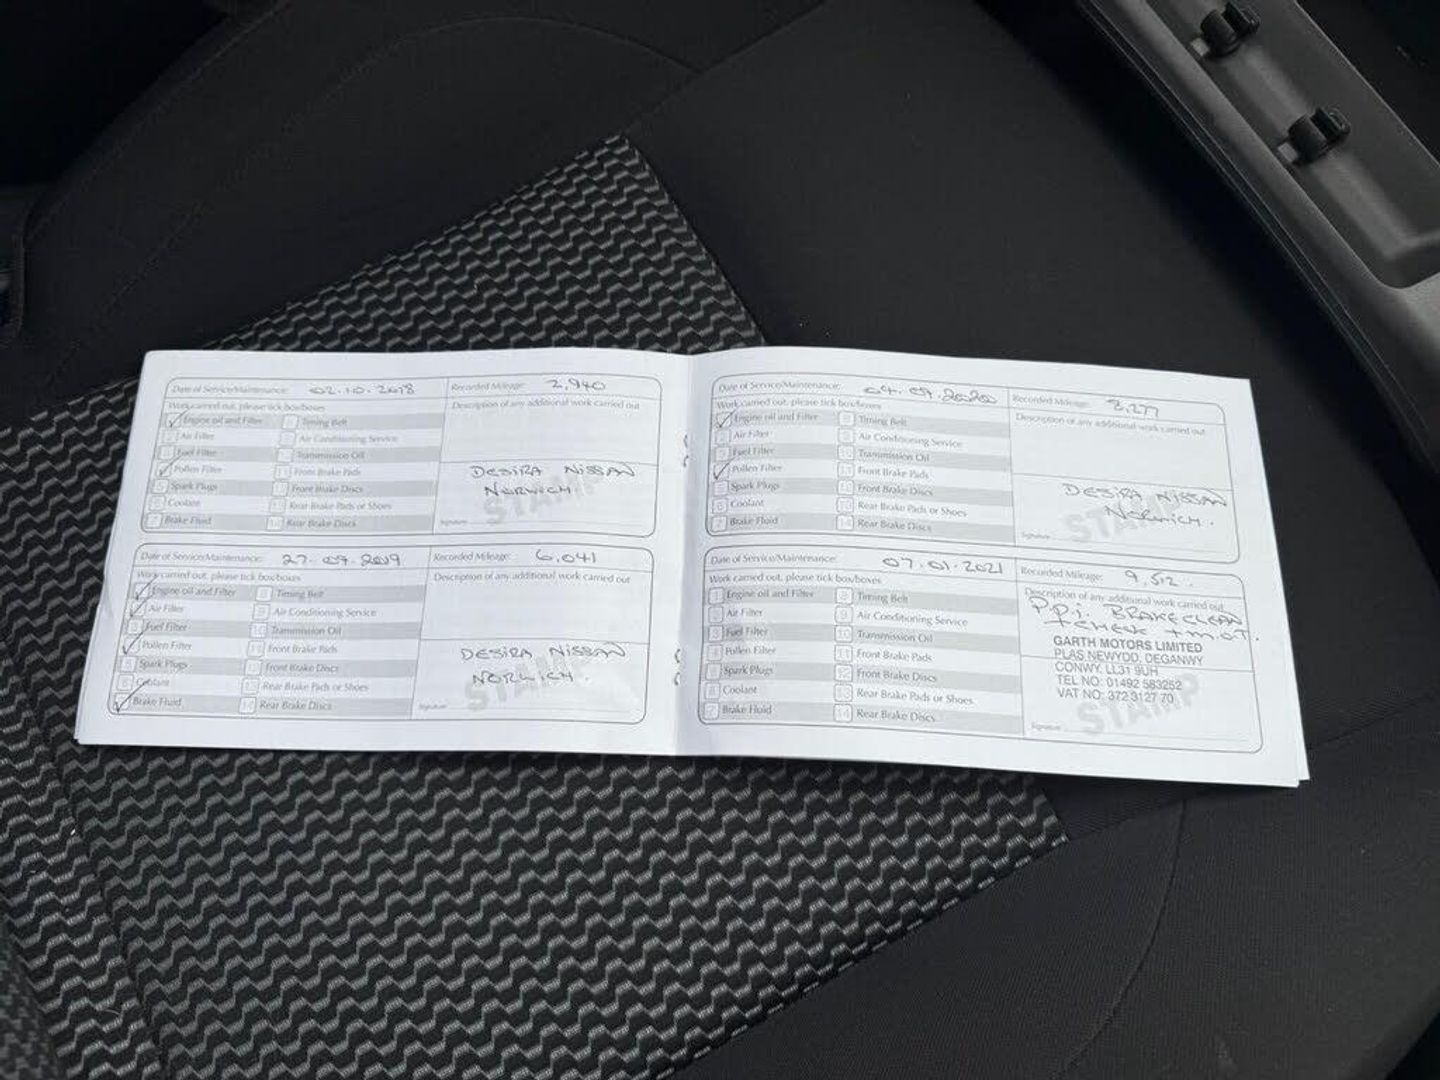 Date of Service/Maintenance: 02.10.2018 Recorded Mileage: 2,940
Work carried out, please tick box/boxes Description of any additional work carried out
Engine oil and Filter 8 Timing Belt
2 Air Filter 9 Air Conditioning Service
3 Fuel Filter Transmission Oil
Pollen Filter 11 Front Brake Pads
5 Spark Plugs 12 Front Brake Discs
6 Coolant 13 Rear Brake Pads or Shoes
7 Brake Fluid 14 Rear Brake Discs
DESIRA NISSAN
NORWICH.
STAMP
Signature
Date of Service/Maintenance: 27.09.2019 Recorded Mileage: 6,041
Work carried out, please tick box/boxes Description of any additional work carried out
Engine oil and Filter 8 Timing Belt
Air Filter 9 Air Conditioning Service
3 Fuel Filter 10 Transmission Oil
Pollen Filter 11 Front Brake Pads
5 Spark Plugs 12 Front Brake Discs
6 Coolant 13 Rear Brake Pads or Shoes
Brake Fluid 14 Rear Brake Discs
DESIRA NISSAN
NORWICH.
STAMP
Signature
Date of Service/Maintenance: 04.09.2020 Recorded Mileage: 8,277
Work carried out, please tick box/boxes Description of any additional work carried out
Engine oil and Filter 8 Timing Belt
2 Air Filter 9 Air Conditioning Service
3 Fuel Filter 10 Transmission Oil
Pollen Filter 11 Front Brake Pads
5 Spark Plugs 12 Front Brake Discs
6 Coolant 13 Rear Brake Pads or Shoes
7 Brake Fluid 14 Rear Brake Discs
DESIRA NISSAN
NORWICH.
STAMP
Signature
Date of Service/Maintenance: 07.01.2021 Recorded Mileage: 9,512.
Work carried out, please tick box/boxes Description of any additional work carried out
1 Engine oil and Filter 8 Timing Belt
2 Air Filter 9 Air Conditioning Service
3 Fuel Filter 10 Transmission Oil
4 Pollen Filter 11 Front Brake Pads
5 Spark Plugs 12 Front Brake Discs
6 Coolant 13 Rear Brake Pads or Shoes
7 Brake Fluid 14 Rear Brake Discs
P.D.i. BRAKE CLEAN
+ CHECK + M.O.T.
GARTH MOTORS LIMITED
PLAS NEWYDD, DEGANWY
CONWY. LL31 9UH
TEL NO: 01492 583252
VAT NO: 372 3127 70
STAMP
Signature